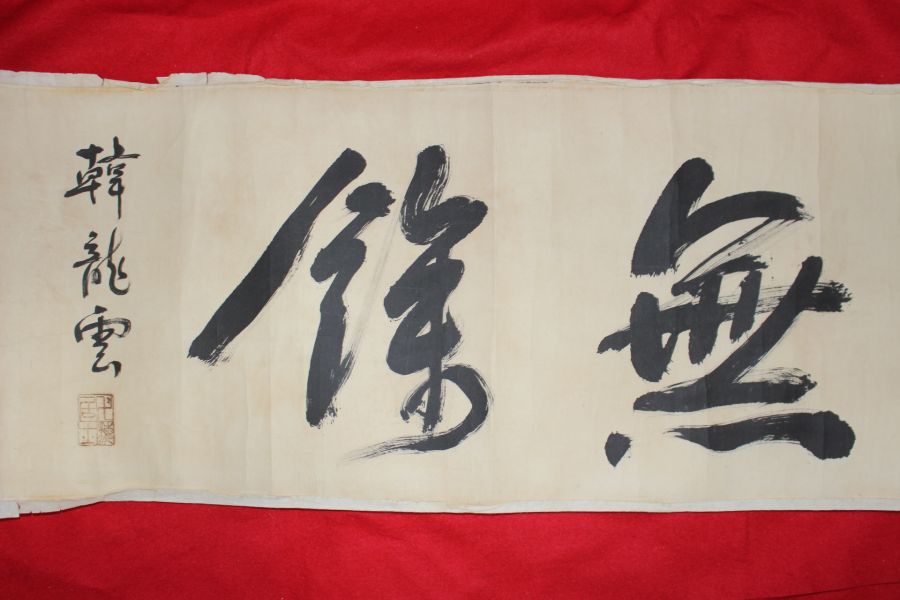 無餘
韓龍雲